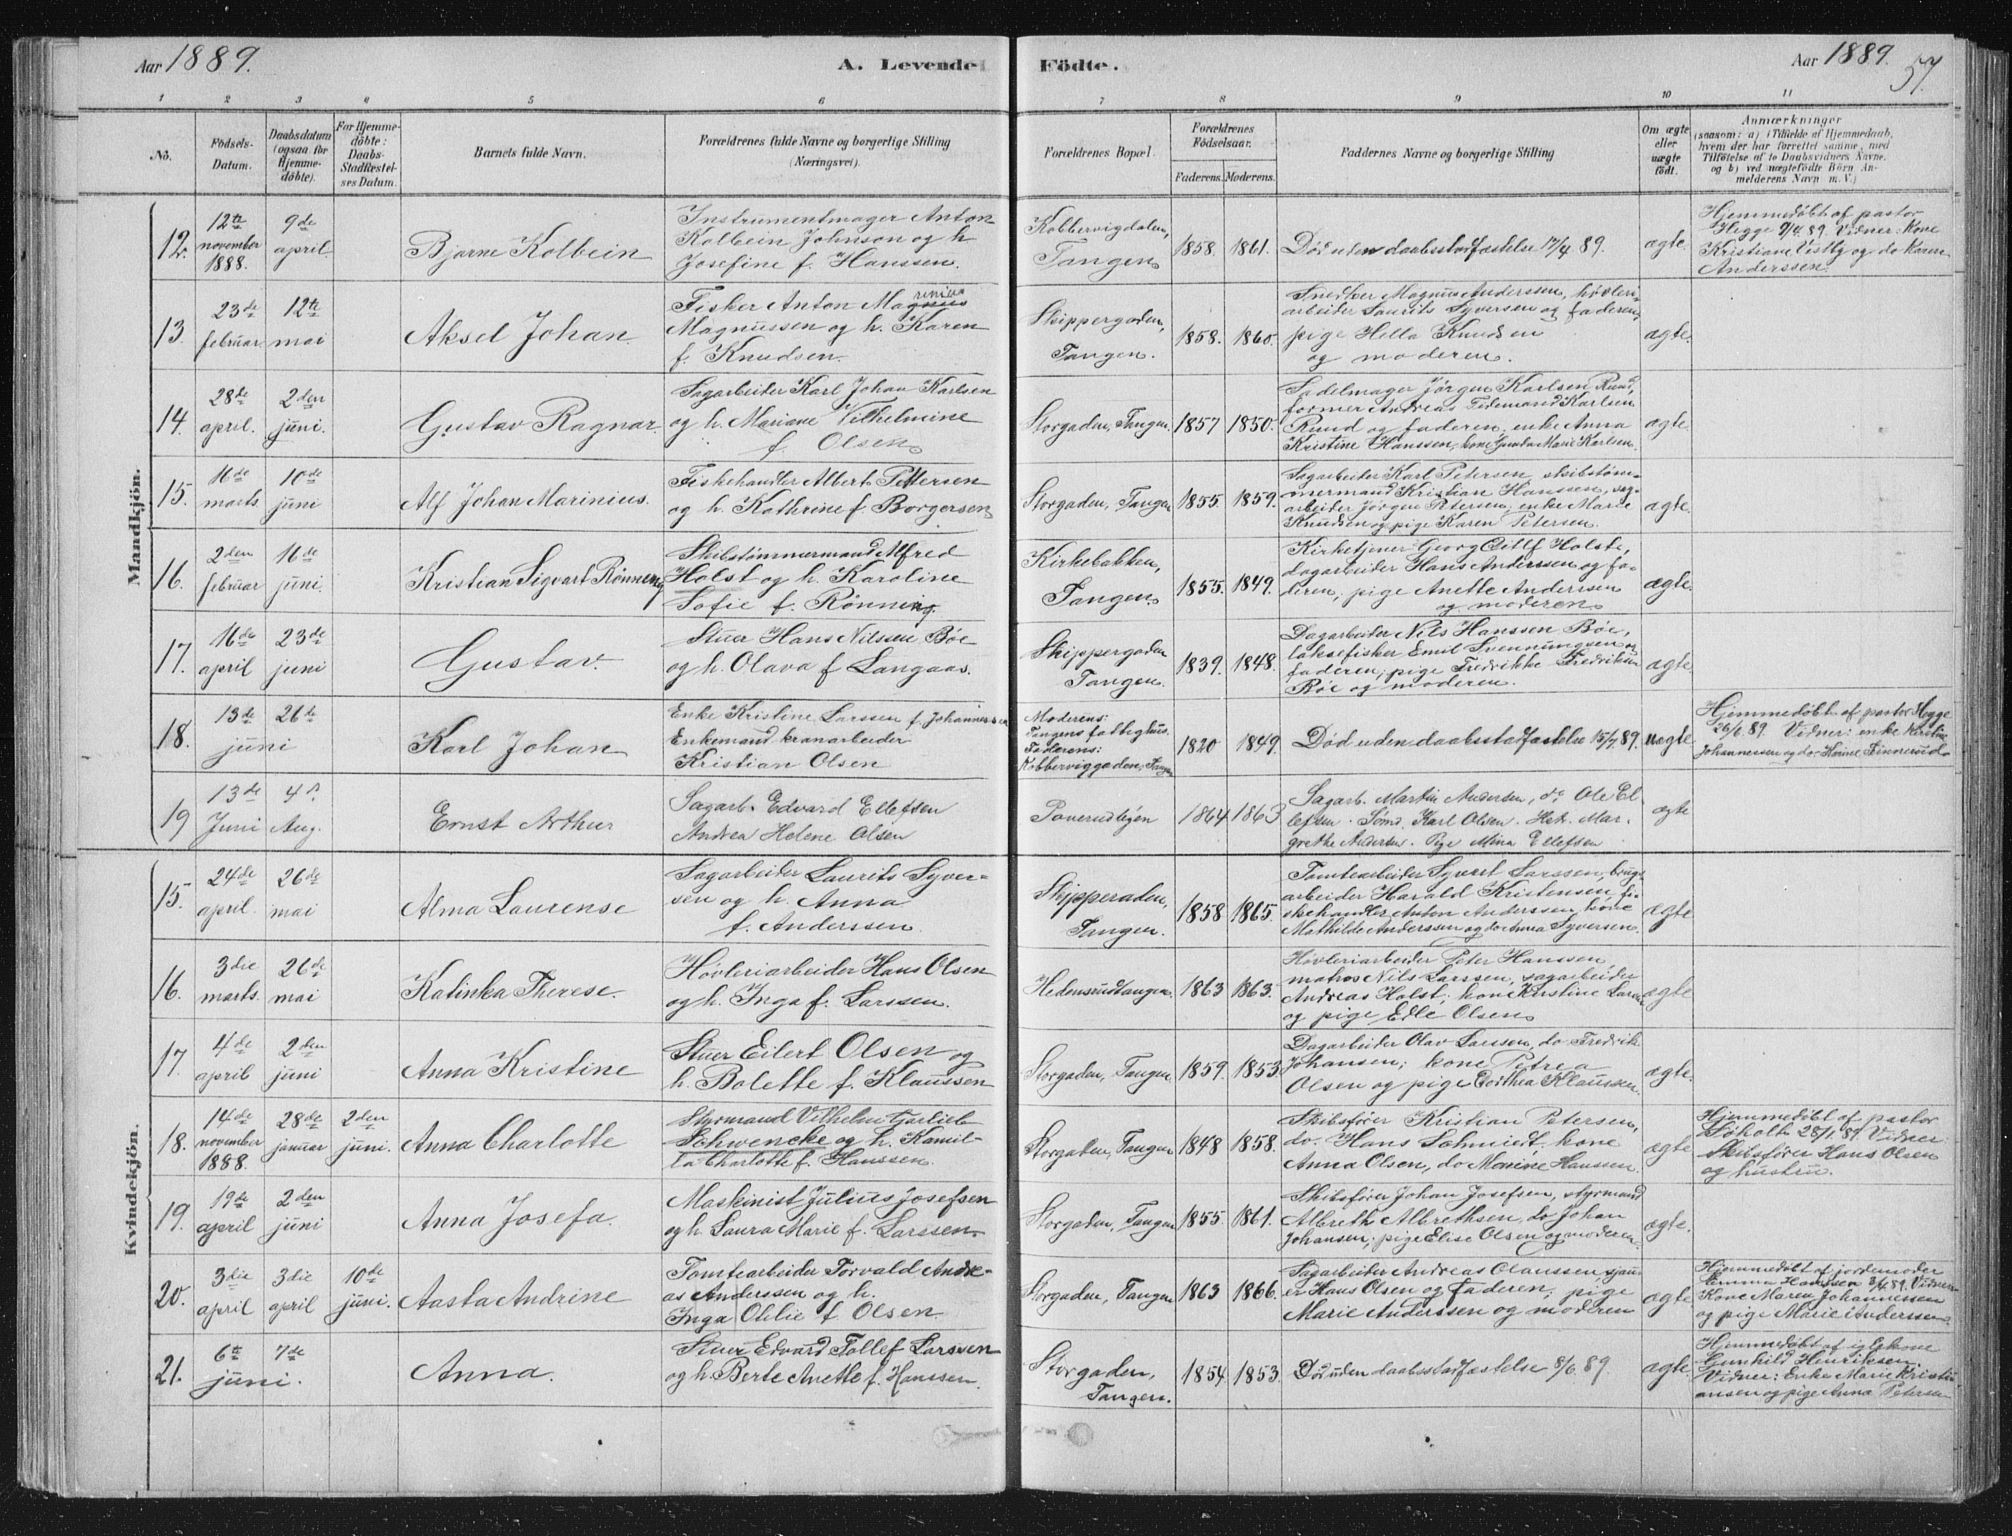 Aar 1889.
A. Levende Födte.
Aar 1889.
57.
1 2 3 4 5 6 7 8 9 10 11
No.
Födsels-Datum.
Daabsdatum (ogsaa for Hjemme-döbte).
For Hjemme-döbte: Daabs-Stadfæstel-ses Datum.
Barnets fulde Navn.
Forældrenes fulde Navne og borgerlige Stilling
(Næringsvei).
Forældrenes Bopæl.
Forældrenes Födselsaar.
Faderens. Moderens.
Faddernes Navne og borgerlige Stilling
Om ægte eller uægte födt.
Anmærkninger
(saasom: a) (Tilfælde af Hjemmedaab,
hvem der har forrettet samme, med
Tilföielse af to Daabsvidners Navne.
og b) ved uægtefödte Börn An-
melderens Navn m. V.)
Mandkjön.
12. 12te november 1888. 9de april. Bjarne Kolbein
Instrumentmager Anton
Kolbein Johnson og h.
Josefine f. Hanssen.
Kobbervigdalen,
Tangen
1858. 1861. Död uden daabsstadfæstelse 17/4 89. ægte
Hjemmedöbt af pastor
Hegge 9/4 89. Vidner: Kone
Kristiane Vestby og do Karen
Anderssen.
13. 23de februar 12te mai Aksel Johan
Fisker Anton Magnus rinius
Magnussen og h. Karen
f. Knudsen.
Skippergaden,
Tangen.
1858. 1860.
Snedker Magnus Anderssen, hövleri-
arbeider Laurits Syversen og faderen,
pige Hella Knudsen
og moderen.
ægte.
14. 28de april. 2den juni. Gustav Ragnar.
Sagarbeider Karl Johan Karlsen
og h. Mariane Vilhelmine
f. Olsen
Storgaden, Tangen
1857 1850.
Sadelmager Jörgen Karlsen Ruud,
former Andreas Tidemand Karlsen
Ruud og faderen, enke Anna
Kristine Hanssen, kone Gunda Marie Karlsen.
ægte.
15. 16de marts 10de juni Alf Johan Marinius.
Fiskehandler Albert Pettersen
og h. Kathrine f. Borgersen
Storgaden, Tangen
1855. 1859.
Sagarbeider Karl Petersen, skibstöm-
mermand Kristian Hanssen, sag-
arbeider Jörgen Petersen, enke Marie
Knudsen og pige Karen Petersen.
ægte
16. 2den februar 16de juni. Kristian Sigvart Rönning
Skibstömmermand Alfred
Holst og h. Karoline
Sofie f. Rönning
Kirkebakken,
Tangen
1855. 1849.
Kirketjener Georg Holste,
dagarbeider Hans Anderssen og fa-
deren, pige Anette Anderssen
og moderen
ægte.
17. 16de april 23de juni Gustav.
Stuer Hans Nilssen Böe
og h. Olava f. Langaas.
Skippergaden
Tangen.
1839. 1848.
Dagarbeider Nils Hanssen Böe,
laksefisker Emil Svennungsen og
faderen, pige Fredrikke Fredriksen
Böe og moderen.
ægte
18. 13de juni 26de Karl Johan
Enke Kristine Larssen f. Johannessen
Enkemand kranarbeider
Kristian Olsen
Moderens:
Tangens fattighus.
Faderens:
Kobberviggaden, Tangen
1820 1849. Död uden daabsstadfæstelse 15/7 89. uægte
Hjemmedöbt af pastor Hegge
26/6 89. Vidner: enke Kirstine
Johannesen og do. Horine Finnerud
19 13de Juni 4d. Aug. Ernst Arthur
Sagarb. Edvard Ellefsen
Andrea Helene Olsen
Toverudbyen
1864 1863
Sagarb. Martin Andersen, do Ole El-
lefsen. Sömd. Karl Olsen. Mar-
grethe Andersen. Pige Mina Ellefsen
ægte
Kvindekjön.
15. 24de april. 26de mai Alma Laurense
Sagarbeider Laurits Syver-
sen og h. Anna
f. Anderssen.
Skipperaden,
Tangen.
1858 1865.
Tomtearbeider Syvert Larssen, brugs-
arbeider Harald Kristensen, fi-
skehandler Anton Anderssen, kone
Mathilde Anderssen og do Anna Syversen.
ægte
16. 3die marts. 26de mai Katinka Therese.
Hövleriarbeider Hans Olsen
og h. Inga f. Larssen.
Hedensrudtangen.
1863 1863.
Hövleriarbeider Peter Hanssen,
matros Nils Larssen, sagarbeider
Andreas Holst, kone Kirstine Larsen
og pige Edle Olsen
ægte
17. 4de april 2den juni Anna Kristine
Stuer Eilert Olsen og
h. Bolette f. Klaussen
Storgaden, Tangen
1859. 1853.
Dagarbeider Olav Larssen, do Fredrik
Johansen; kone Petrea
Olsen og pige Dorthea Klaussen
ægte.
18. 14de november 1888. 28de januar 2den juni. Anna Charlotte
Styrmand Vilhelm Garlieb
Schwencke og h. Kamil-
la Charlotte f. Hanssen.
Storgaden, Tangen
1848 1858.
Skibsförer Kristian Petersen,
do. Hans Schmidt, kone
Anna Olsen, do Monine Hanssen.
ægte
Hjemmedöbt af pastor
28/1 89. Vidner
Skibsförer Hans Olsen
og hustru.
19. 19de april 2den juni Anna Josefa.
Maskinist Julius Josefsen
og h. Laura Marie f. Larssen
Storgaden, Tangen
1855. 1861.
Skibsförer Johan Josefsen, styrmand
Albreth Albrethsen, do Johan
Johansen, pige Elise Olsen og moderen.
ægte.
20. 3die april 3die april 10de juni. Aasta Andrine
Tomtearbeider Torvald Andre-
as Anderssen og h.
Inga Otilie f. Olsen.
Storgaden, Tangen
1863 1866.
Sagarbeider Andreas Olaussen, sjau-
er Hans Olsen og faderen, pige
Marie Anderssen og moderen
ægte
Hjemmedöbt af jordemoder
Emma Hanssen 3/4 89. Vidner:
Kone Maren Johannessen
og pige Marie Anderssen
21. 6te juni. 7de Anna.
Stuer Edvard Tollef Larssen
og h. Berte Anette f. Hanssen.
Storgaden,
Tangen.
1854 1853. Död uden daabsstadfæstelse 8/6 89 ægte.
Hjemmedöbt af iglekone
Gunhild Henriksen
Vidner: Enke Marie Kristi-
ansen og pige Anna Petersen